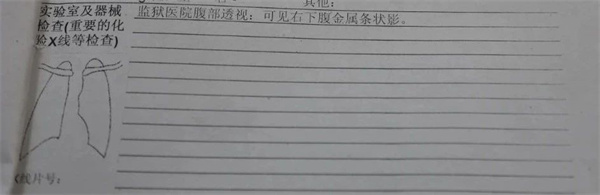 其他：
实验室及器械
检查(重要的化
验X线等检查)
监狱医院腹部透视：可见右下腹金属条状影。
X线片号：